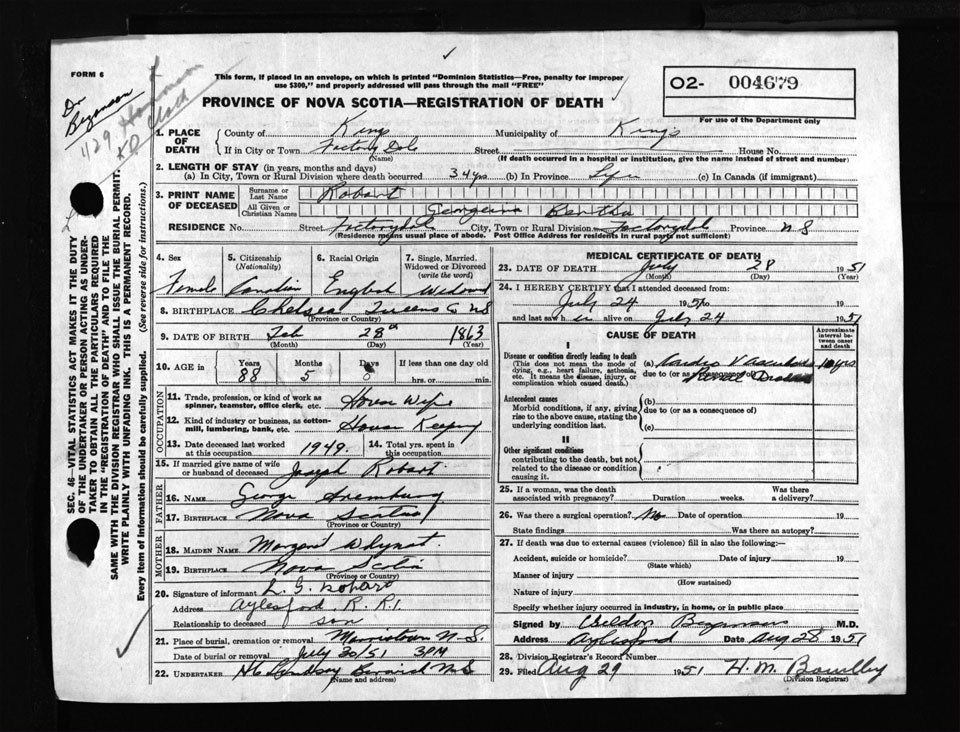 FORM 6
This form, if placed in an envelope, on which is printed "Dominion Statistics—Free, penalty for improper
use $300," and properly addressed will pass through the mail "FREE"
O2- 004679
For use of the Department only
Dr
429
PROVINCE OF NOVA SCOTIA—REGISTRATION OF DEATH
1. PLACE OF DEATH { County of Kings Municipality of Kings
If in City or Town Factory Dale Street House No.
(Name) (If death occurred in a hospital or institution, give the name instead of street and number)
2. LENGTH OF STAY (in years, months and days)
(a) In City, Town or Rural Division where death occurred 34 yrs (b) In Province Life (c) In Canada (if immigrant)
3. PRINT NAME OF DECEASED { Surname or Last Name Robart
All Given or Christian Names Georgeina Bertha
RESIDENCE No. Street Factorydale City, Town or Rural Division Factorydale Province N S
(Residence means usual place of abode. Post Office Address for residents in rural parts not sufficient)
4. Sex 5. Citizenship (Nationality) 6. Racial Origin 7. Single, Married, Widowed or Divorced (write the word)
Female Canadian English Widowed
8. BIRTHPLACE Chelsea Queens Co N S
(Province or Country)
9. DATE OF BIRTH Feb 28th 1863
(Month) (Day) (Year)
10. AGE in Years Months Days If less than one day old
88 5 0 hrs. or min.
OCCUPATION
11. Trade, profession, or kind of work as spinner, teamster, office clerk, etc. House Wife
12. Kind of industry or business, as cotton-mill, lumbering, bank, etc. House Keeping
13. Date deceased last worked at this occupation 1949. 14. Total yrs. spent in this occupation
15. If married give name of wife or husband of deceased Joseph Robart
FATHER
16. NAME George
17. BIRTHPLACE Nova Scotia
(Province or Country)
MOTHER
18. MAIDEN NAME Margaret
19. BIRTHPLACE Nova Scotia
(Province or Country)
20. Signature of informant L. G. Robart
Address Aylesford, R. R. 1.
Relationship to deceased son
21. Place of burial, cremation or removal Morristown N. S.
Date of burial or removal July 30/51 3 PM
22. UNDERTAKER H C Lindsay Berwick N S
(Name and address)
MEDICAL CERTIFICATE OF DEATH
23. DATE OF DEATH July 28 1951
(Month) (Day) (Year)
24. I HEREBY CERTIFY that I attended deceased from:
July 24 1951 to 19
and last saw h er alive on July 24 1951
CAUSE OF DEATH Approximate interval between onset and death
I
Disease or condition directly leading to death (a) Cardio Vascular 10 yrs
(This does not mean the mode of dying, e.g., heart failure, asthenia, etc. It means the disease, injury, or complication which caused death.)
due to (or as a consequence of) Renal Disease
Antecedent causes
Morbid conditions, if any, giving rise to the above cause, stating the underlying condition last.
(b)
due to (or as a consequence of)
(c)
II
Other significant conditions
contributing to the death, but not related to the disease or condition causing it.
25. If a woman, was the death associated with pregnancy? Duration weeks. Was there a delivery?
26. Was there a surgical operation? No Date of operation 19
State findings Was there an autopsy?
27. If death was due to external causes (violence) fill in also the following:—
Accident, suicide or homicide? Date of injury 19
(State which)
Manner of injury
(How sustained)
Nature of injury
Specify whether injury occurred in industry, in home, or in public place
Signed by M.D.
Address Aylesford Date Aug 28 1951
28. Division Registrar's Record Number
29. Filed Aug 29 1951 H. M. Bowlby
(Division Registrar)
SEC. 46—VITAL STATISTICS ACT MAKES IT THE DUTY
OF THE UNDERTAKER OR PERSON ACTING AS UNDER-
TAKER TO OBTAIN ALL THE PARTICULARS REQUIRED
IN THE "REGISTRATION OF DEATH" AND TO FILE THE
SAME WITH THE DIVISION REGISTRAR WHO SHALL ISSUE THE BURIAL PERMIT.
WRITE PLAINLY WITH UNFADING INK. THIS IS A PERMANENT RECORD.
Every item of Information should be carefully supplied. (See reverse side for instructions.)